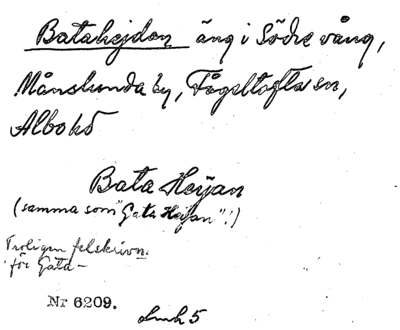 Batahejdan äng i Södre vång,
Månslunda by, Fågeltofta sn,
Albo hd
Bata Heijan
(samma som "Gata Heijan"!)
Troligen felskrivn.
för Gata-
Nr 6209.